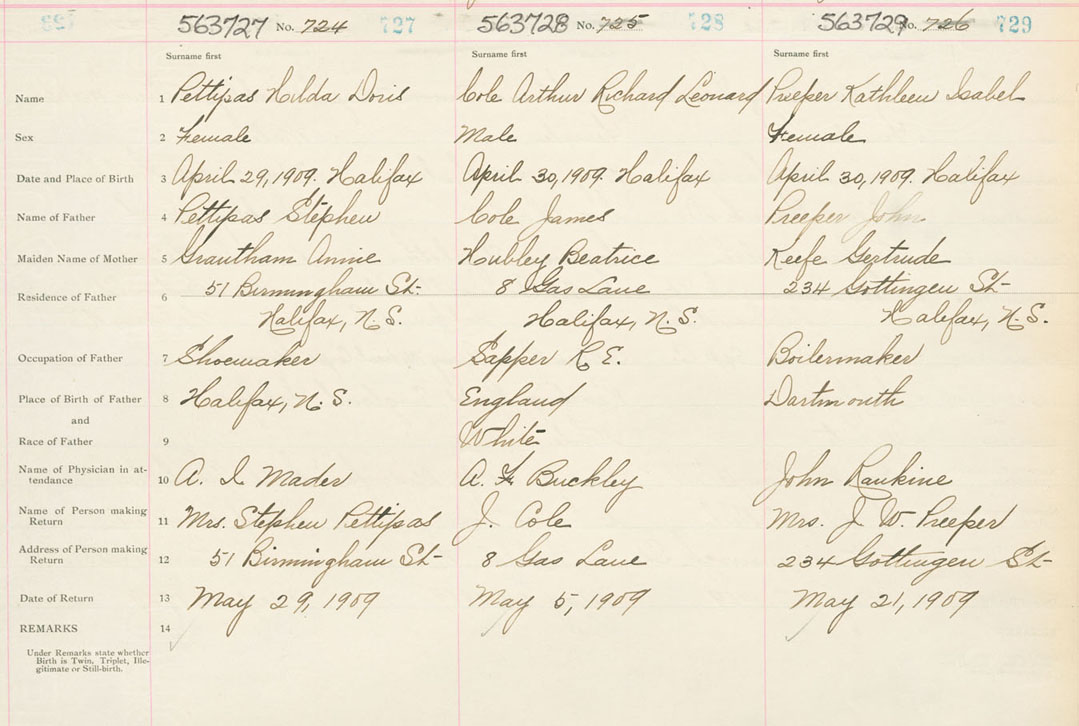 563727 No. 724 727 563728 No. 725 728 563729 No. 726 729
Surname first Surname first Surname first
Name 1 Pettipas Hilda Doris Cole Arthur Richard Leonard Preeper Kathleen Isabel
Sex 2 Female Male Female
Date and Place of Birth 3 April 29, 1909. Halifax April 30, 1909. Halifax April 30, 1909. Halifax
Name of Father 4 Pettipas Stephen Cole James Preeper John
Maiden Name of Mother 5 Grautham Annie Hubley Beatrice Keefe Gertrude
Residence of Father 6 51 Birmingham St- 8 Gas Lane 234 Gottingen St-
Halifax, N.S. Halifax, N.S. Halifax, N.S.
Occupation of Father 7 Shoemaker Sapper R.E. Boilermaker
Place of Birth of Father 8 Halifax, N.S. England Dartmouth
and
Race of Father 9 White
Name of Physician in at-
tendance 10 A. I. Mader A. F. Buckley John Rankine
Name of Person making
Return 11 Mrs. Stephen Pettipas J. Cole Mrs. J. W. Preeper
Address of Person making
Return 12 51 Birmingham St- 8 Gas Lane 234 Gottingen St-
Date of Return 13 May 29, 1909 May 5, 1909 May 21, 1909
REMARKS 14
Under Remarks state whether
Birth is Twin, Triplet, Ille-
gitimate or Still-birth.